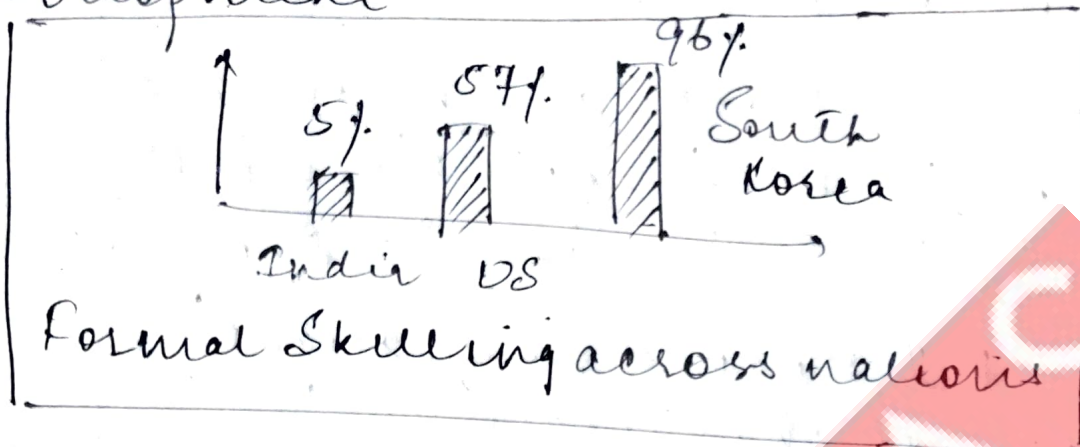 96%.
57%.
5%.
South
Korea
India US
Formal Skilling across nations